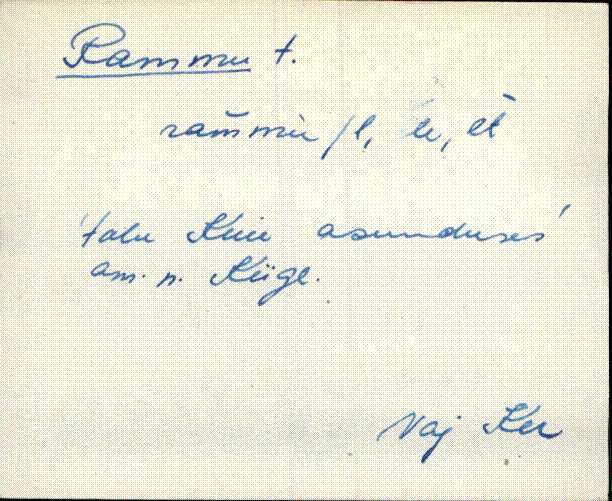 Rammu t.
rammu /l, le, lt
'talu Kiiu asunduses'
am. n. Kiige.
Vaj Keu